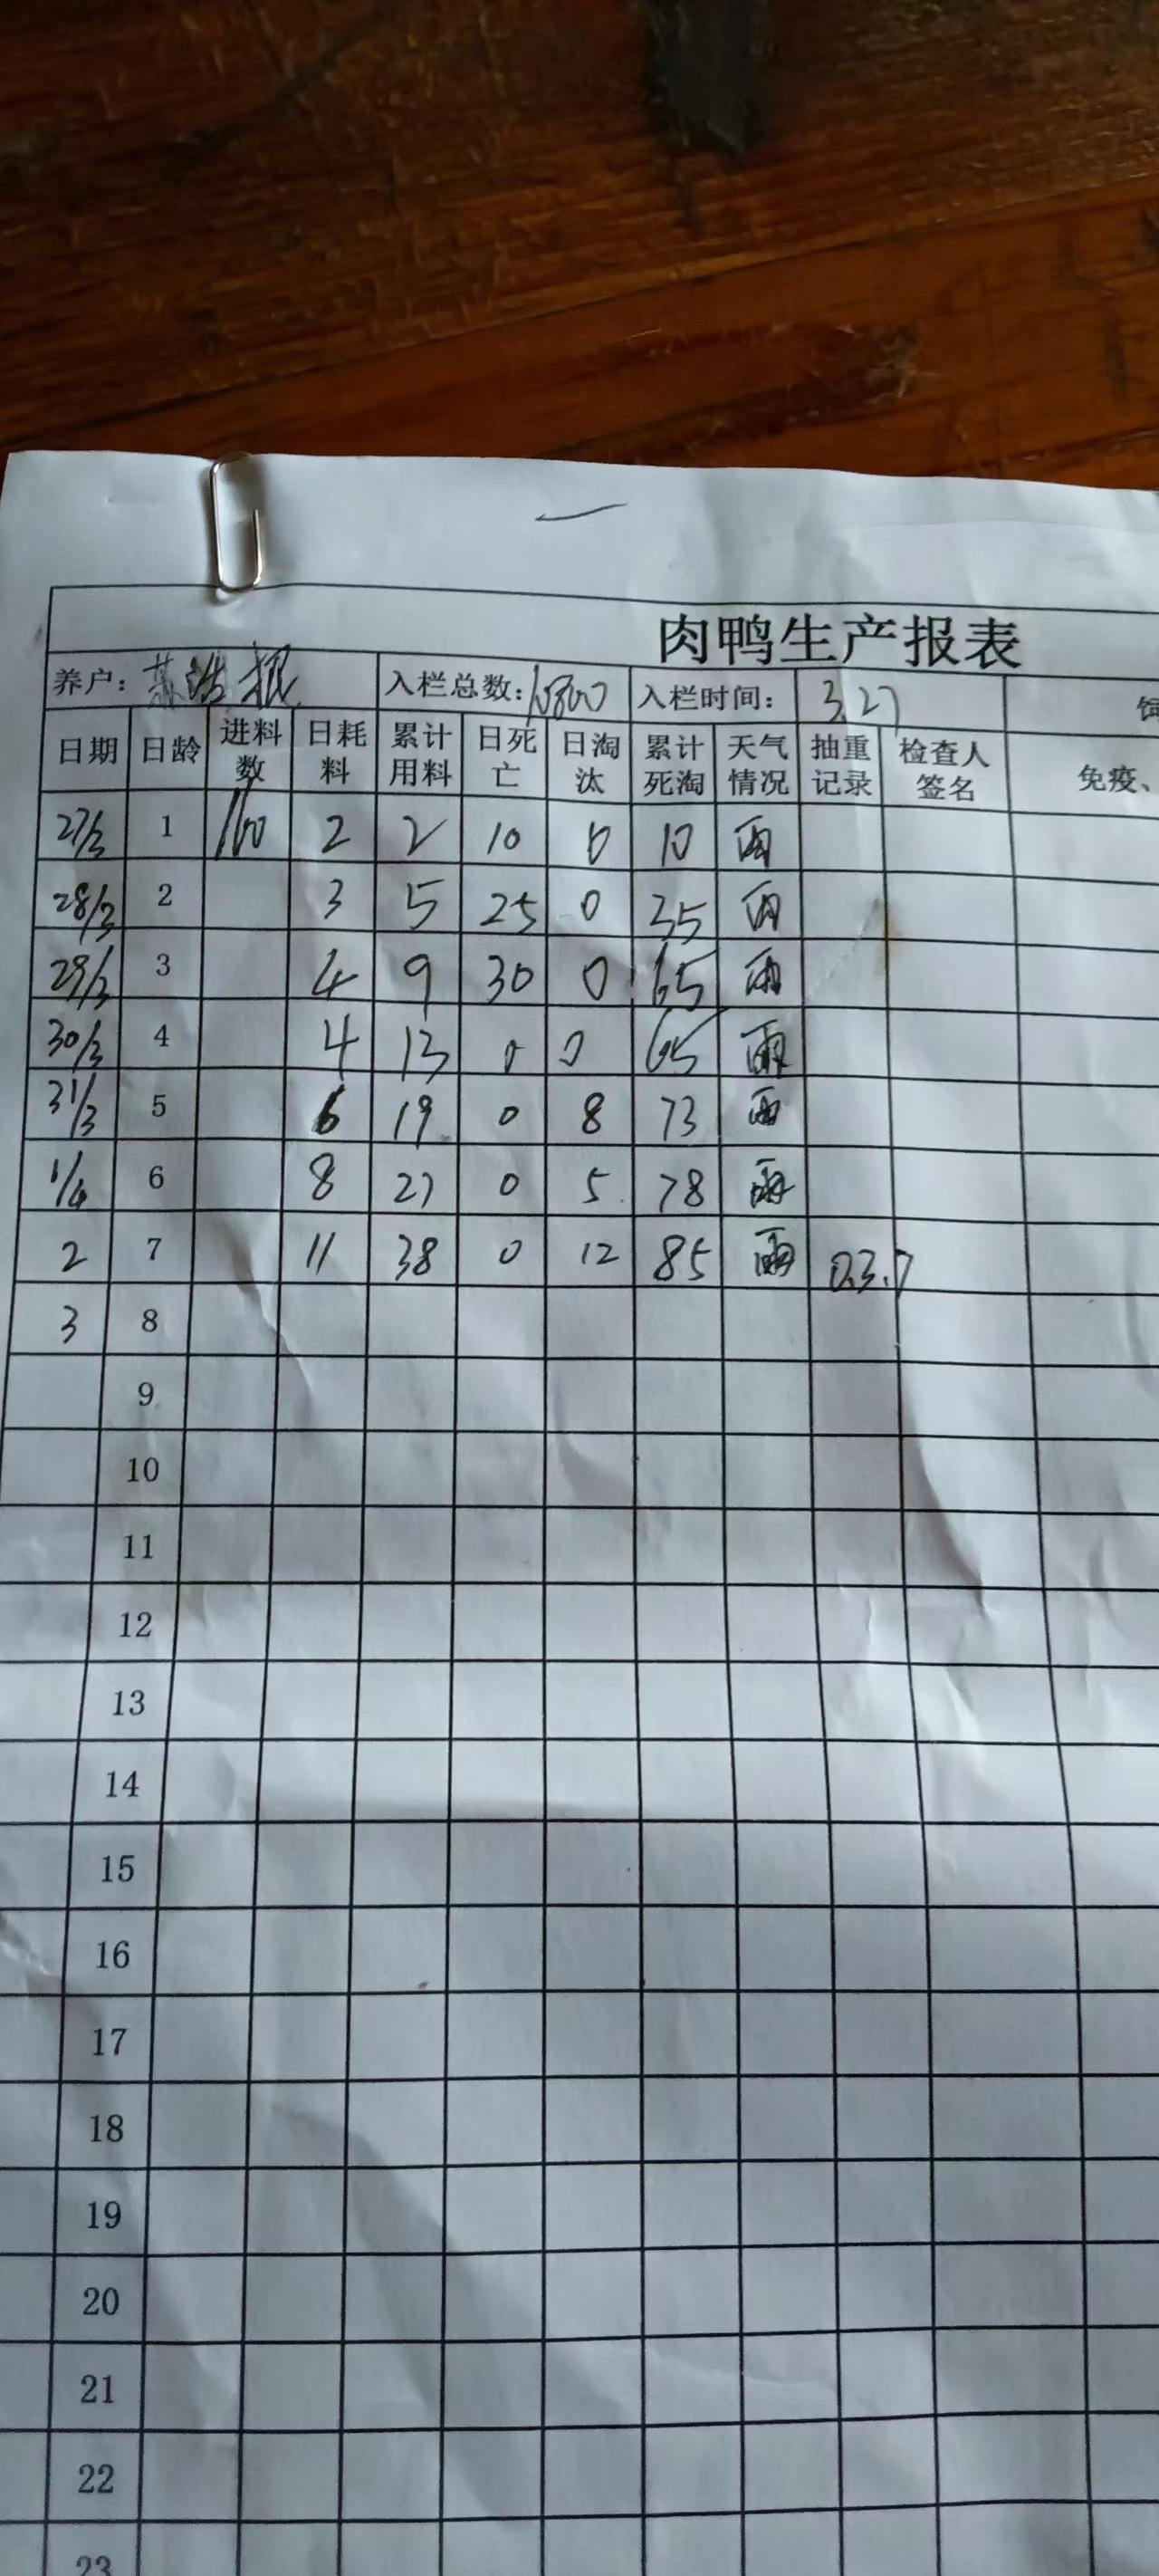 肉鸭生产报表
养户: 入栏总数: 10800 入栏时间: 3.27
日期 日龄 进料数 日耗料 累计用料 日死亡 日淘汰 累计死淘 天气情况 抽重记录 检查人签名 免疫、
27/3 1 160 2 2 10 0 10 雨
28/3 2 3 5 25 0 35 雨
29/3 3 4 9 30 0 65 雨
30/3 4 4 13 0 0 65 雨
31/3 5 6 19 0 8 73 雨
1/4 6 8 27 0 5 78 雨
2 7 11 38 0 12 85 雨 0.3.7
3 8
9
10
11
12
13
14
15
16
17
18
19
20
21
22
23